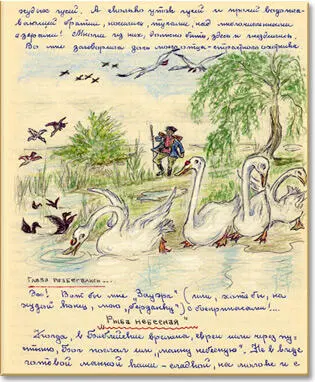 худых гусей. А сколько уток гусей и прочей водопла-
вающей братии, носились, тучами, над многочисленными
озерами! Многие из них, должно быть, здесь и гнездились.
Во мне заговорила душа охотника
Глаза разбегались...
Эх! Вот бы мне "Зауэра" (или, хотя бы, на
худой конец, мою "берданку") с боеприпасами!...
"Рыба небесная"
Когда, в Библейские времена, евреи шли через пу-
стыню, Бог послал им "манну небесную". Не в виде
готовой манной каши - сладкой, на молоке и с